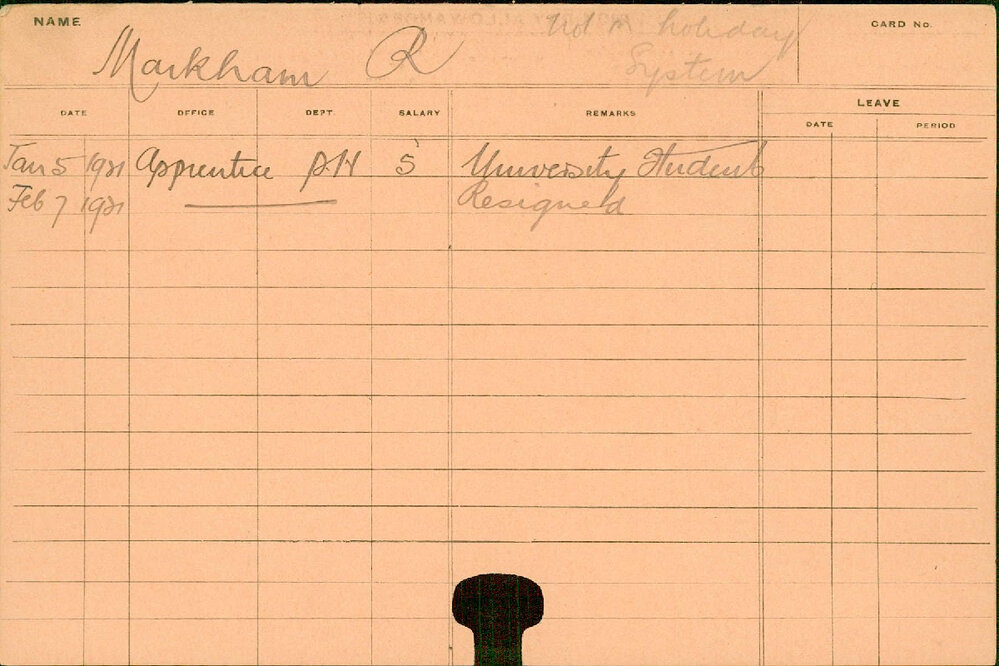 NAME Markham R Not on holiday System CARD No.
DATE OFFICE DEPT. SALARY REMARKS LEAVE
DATE PERIOD
Jan 5 1921 Apprentice P.H 5 University Student
Feb 7 1921 Resigned